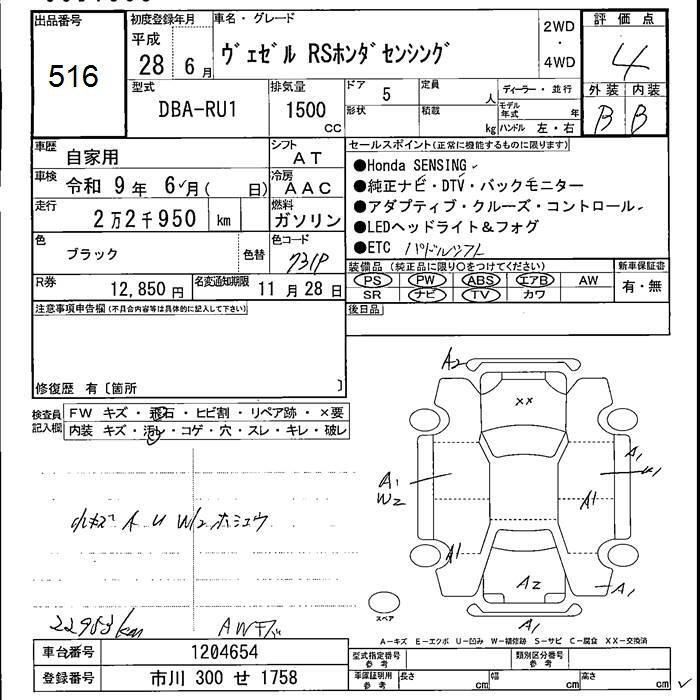 出品番号
516
初度登録年月
平成
28 6月
車名・グレード
ヴェゼル RSホンダセンシング
2WD
・
4WD
評価点
4
外装 内装
B B
型式
DBA-RU1
排気量
1500
cc
ドア 5
形状
定員
人
積載
kg
ディーラー・並行
モデル年式 年
ハンドル 左・右
車歴 自家用
シフト
AT
車検 令和 9年 6月( 日)
冷房
AAC
走行 2万2千950 km
燃料
ガソリン
色 ブラック
色替
色コード
731P
R券 12,850円
名変通知期限 11月28日
セールスポイント(正常に機能するものに限ります)
●Honda SENSING
●純正ナビ・DTV・バックモニター
●アダプティブ・クルーズ・コントロール
●LEDヘッドライト&フォグ
●ETC パドルシフト
装備品(純正品に限り○をつけてください)
PS PW ABS エアB AW
SR ナビ TV カワ
新車保証書
有・無
後日品
注意事項申告欄(不具合内容等は具体的に記入して下さい)
修復歴 有〔箇所 〕
検査員記入欄
FW キズ・飛石・ヒビ割・リペア跡・×要
内装 キズ・汚レ・コゲ・穴・スレ・キレ・破レ
小キズ A U W2
22953km
A2
××
A1
W2
A1
A1
A1
A1
A2
A1
A1
スペア
A-キズ E-エクボ U-凹み W-補修跡 S-サビ C-腐食 XX-交換済
車台番号 1204654
登録番号 市川 300 せ 1758
型式指定番号
参考
類別区分番号
参考
車庫証明用
参考
長さ cm
幅 cm
高さ cm